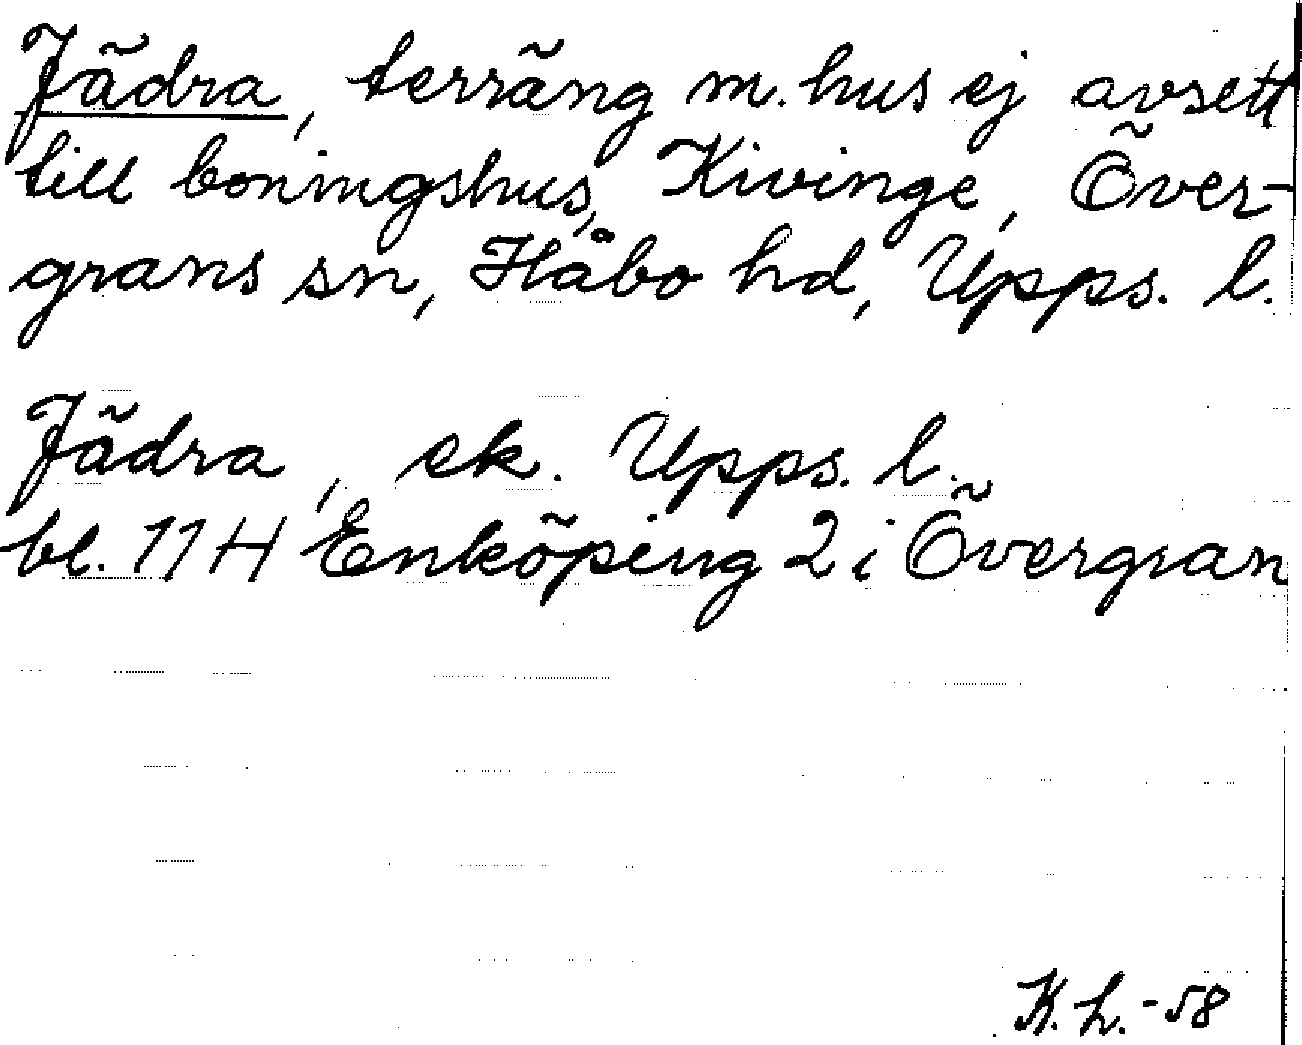 Jädra, terräng m. hus ej avsett
till boningshus, Kivinge, Över-
grans sn, Håbo hd, Upps. l.
Jädra, ek. Upps. l.
bl. 11H Enköping 2 i Övergran
K.L.-58